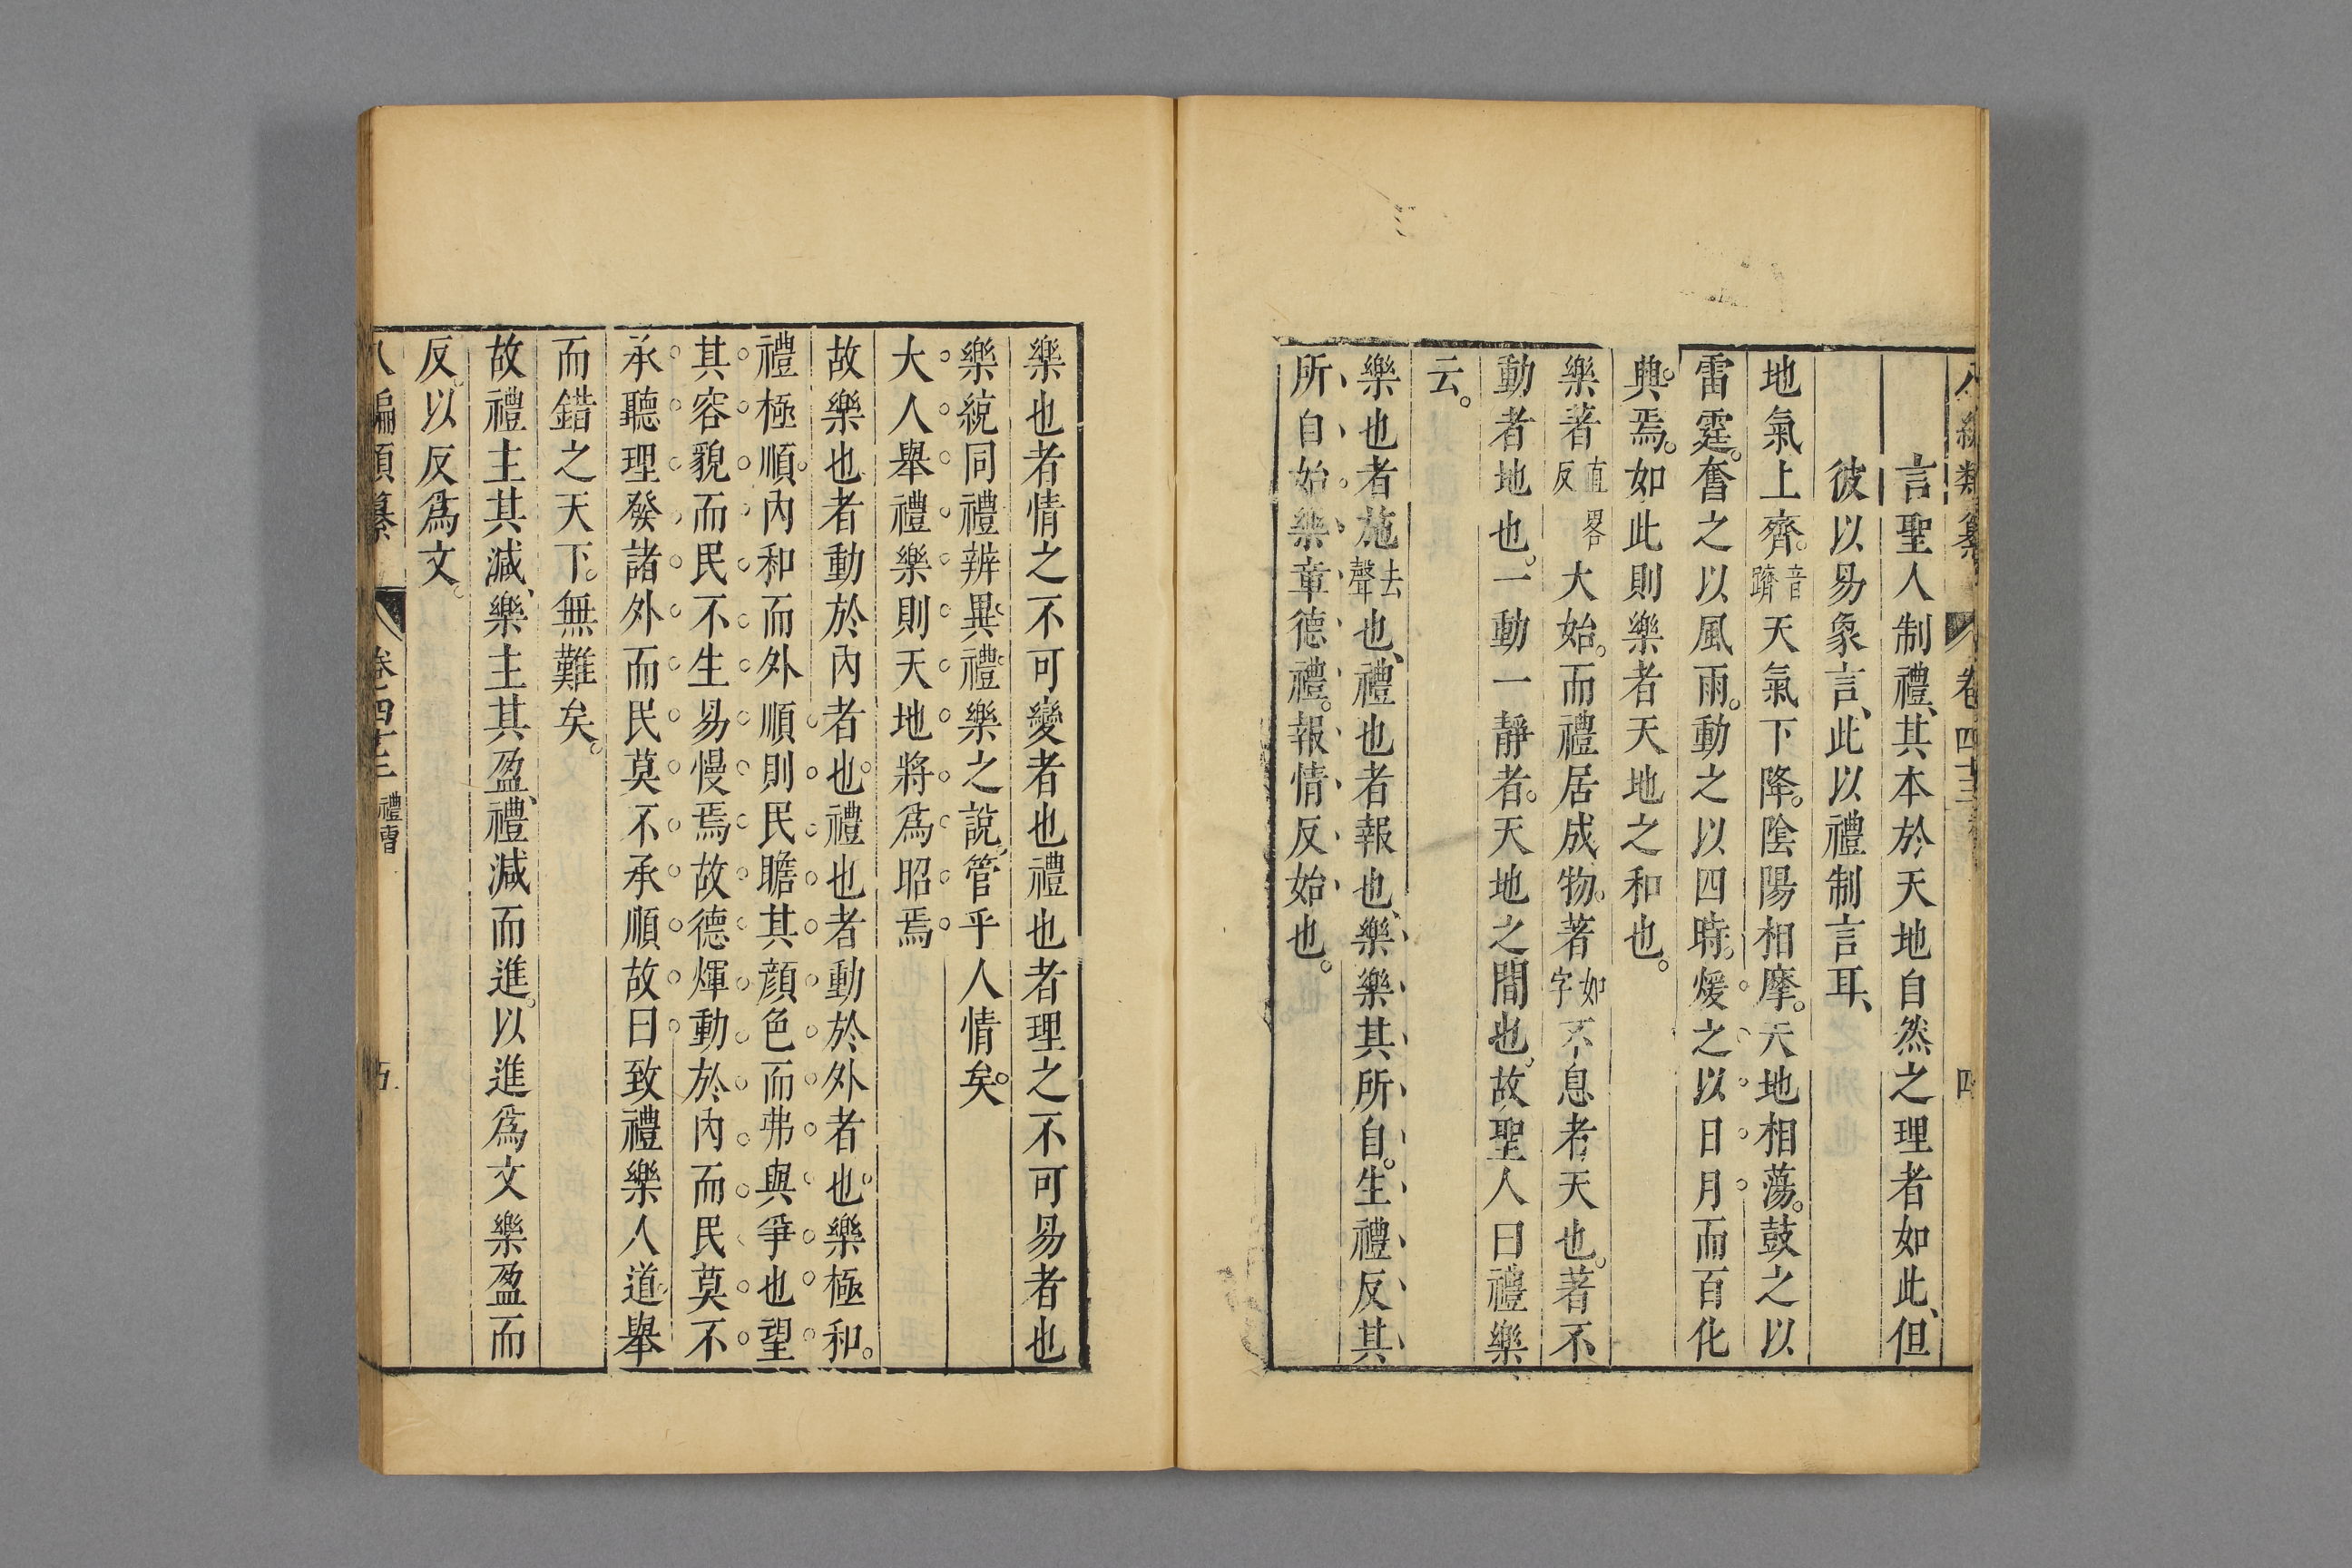 八編類纂 卷四十三 四
言聖人制禮、其本於天地自然之理者如此、但
彼以易象言、此以禮制言耳、
地氣上齊。音躋天氣下降。陰陽相摩。天地相蕩。鼓之以
雷霆。奮之以風雨。動之以四時。煖之以日月而百化
興焉。如此則樂者天地之和也。
樂著直畧反大始。而禮居成物。著如字不息者天也。著不
動者地也。一動一靜者。天地之間也。故聖人曰禮樂
云。
樂也者施去聲也、禮也者報也、樂樂其所自。生禮反其
所自始樂章德禮。報情反始也。
樂也者情之不可變者也禮也者理之不可易者也
樂統同禮辨異。禮樂之說。管乎人情矣。
大人舉禮樂則天地將爲昭焉
故樂也者動於內者也。禮也者動於外者也。樂極和。
禮極順。內和而外順則民瞻其顔色而弗與爭也望
其容貌而民不生易慢焉故德煇動於內而民莫不
承聽理發諸外而民莫不承順故曰致禮樂人道舉
而錯之天下。無難矣。
故禮主其減、樂主其盈、禮減而進。以進爲文樂盈而
反。以反爲文。
八編類纂 卷四十三 禮曹 五